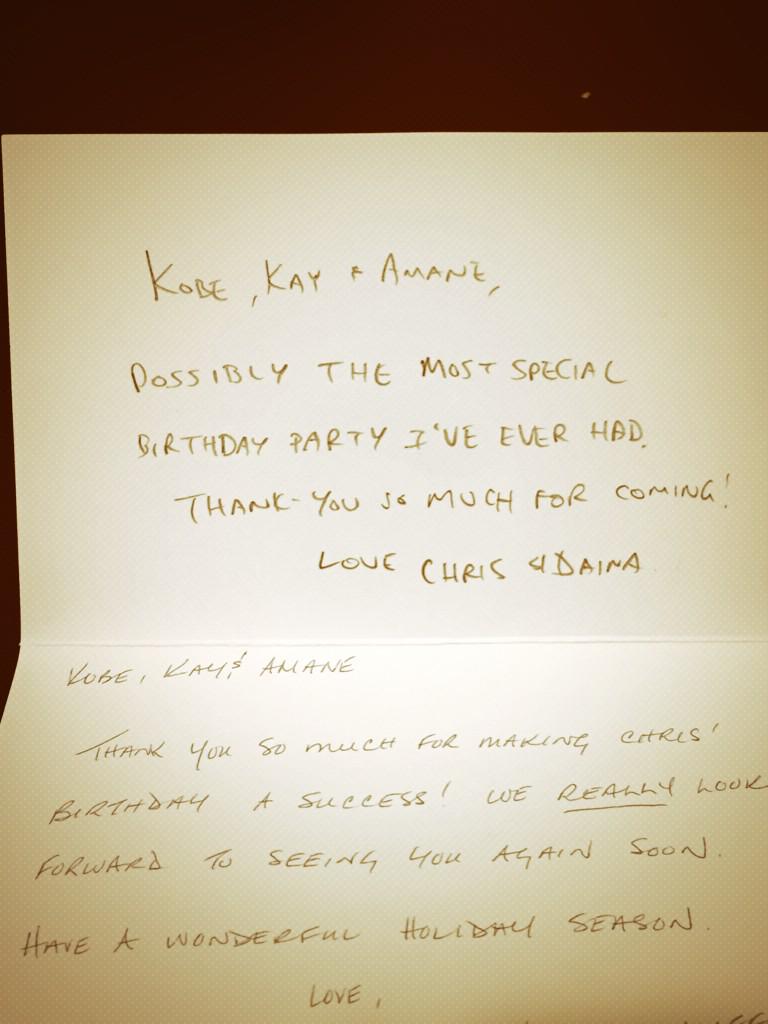 KOBE, KAY & AMANE,
POSSIBLY THE MOST SPECIAL
BIRTHDAY PARTY I'VE EVER HAD.
THANK-YOU SO MUCH FOR COMING!
LOVE CHRIS & DAINA
KOBE, KAY & AMANE
THANK YOU SO MUCH FOR MAKING CHRIS'
BIRTHDAY A SUCCESS! WE REALLY LOOK
FORWARD TO SEEING YOU AGAIN SOON.
HAVE A WONDERFUL HOLIDAY SEASON.
LOVE,